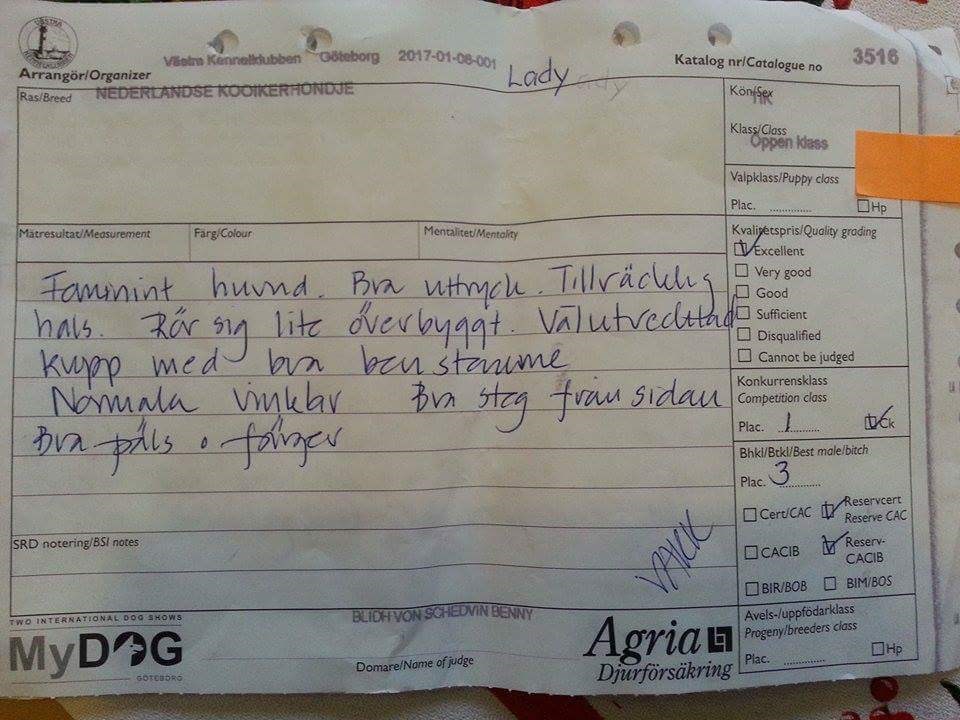 VÄSTRA KENNELKLUBBEN
Arrangör/Organizer
Västra Kennelklubben Göteborg 2017-01-08-001
Lady
Katalog nr/Catalogue no 3516
Ras/Breed NEDERLANDSE KOOIKERHONDJE
Kön/Sex
Klass/Class
Öppen klass
Valpklass/Puppy class
Plac. ............ Hp
Mätresultat/Measurement Färg/Colour Mentalitet/Mentality
Kvalitetspris/Quality grading
Excellent
Very good
Good
Sufficient
Disqualified
Cannot be judged
Feminint huvud. Bra uttryck. Tillräcklig
hals. Rör sig lite överbyggt. Välutvecklad
kropp med bra benstomme
Normala vinklar Bra steg från sidan
Bra päls o färger
Konkurrensklass
Competition class
Plac. 1 Ck
Bhkl/Btkl/Best male/bitch
Plac. 3
Cert/CAC Reservcert
Reserve CAC
CACIB Reserv-
CACIB
BIR/BOB BIM/BOS
SRD notering/BSI notes
TWO INTERNATIONAL DOG SHOWS
MyDOG
GÖTEBORG
BLIDH VON SCHEDVIN BENNY
Domare/Name of judge
Agria
Djurförsäkring
Avels-/uppfödarklass
Progeny/breeders class
Plac. ............ Hp